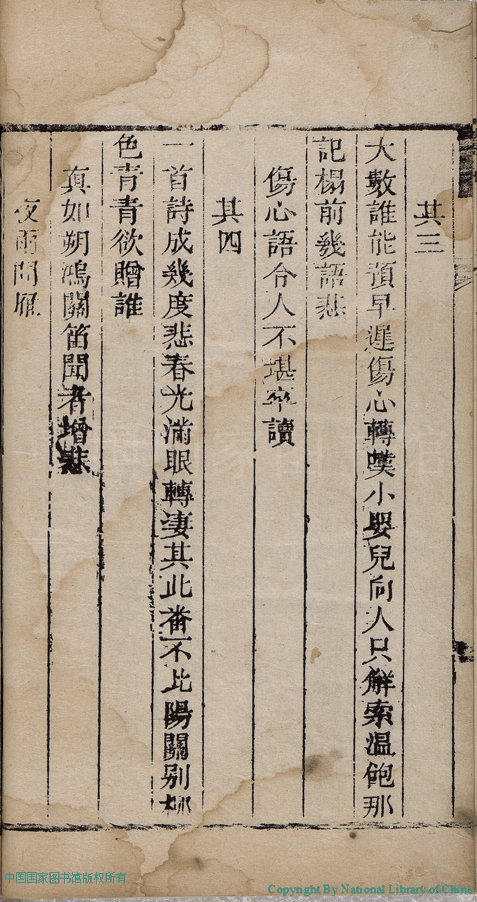 其三
大數誰能預早遲傷心轉嘆小嬰兒向人只解索溫飽那
記榻前幾語悲
傷心語令人不堪卒讀
其四
一首詩成幾度悲春光滿眼轉淒其此番不比陽關別柳
色青青欲贈誰
真如朔鴻關笛聞者增悲
夜雨聞雁
中国国家图书馆版权所有
Copyright By National Library of China